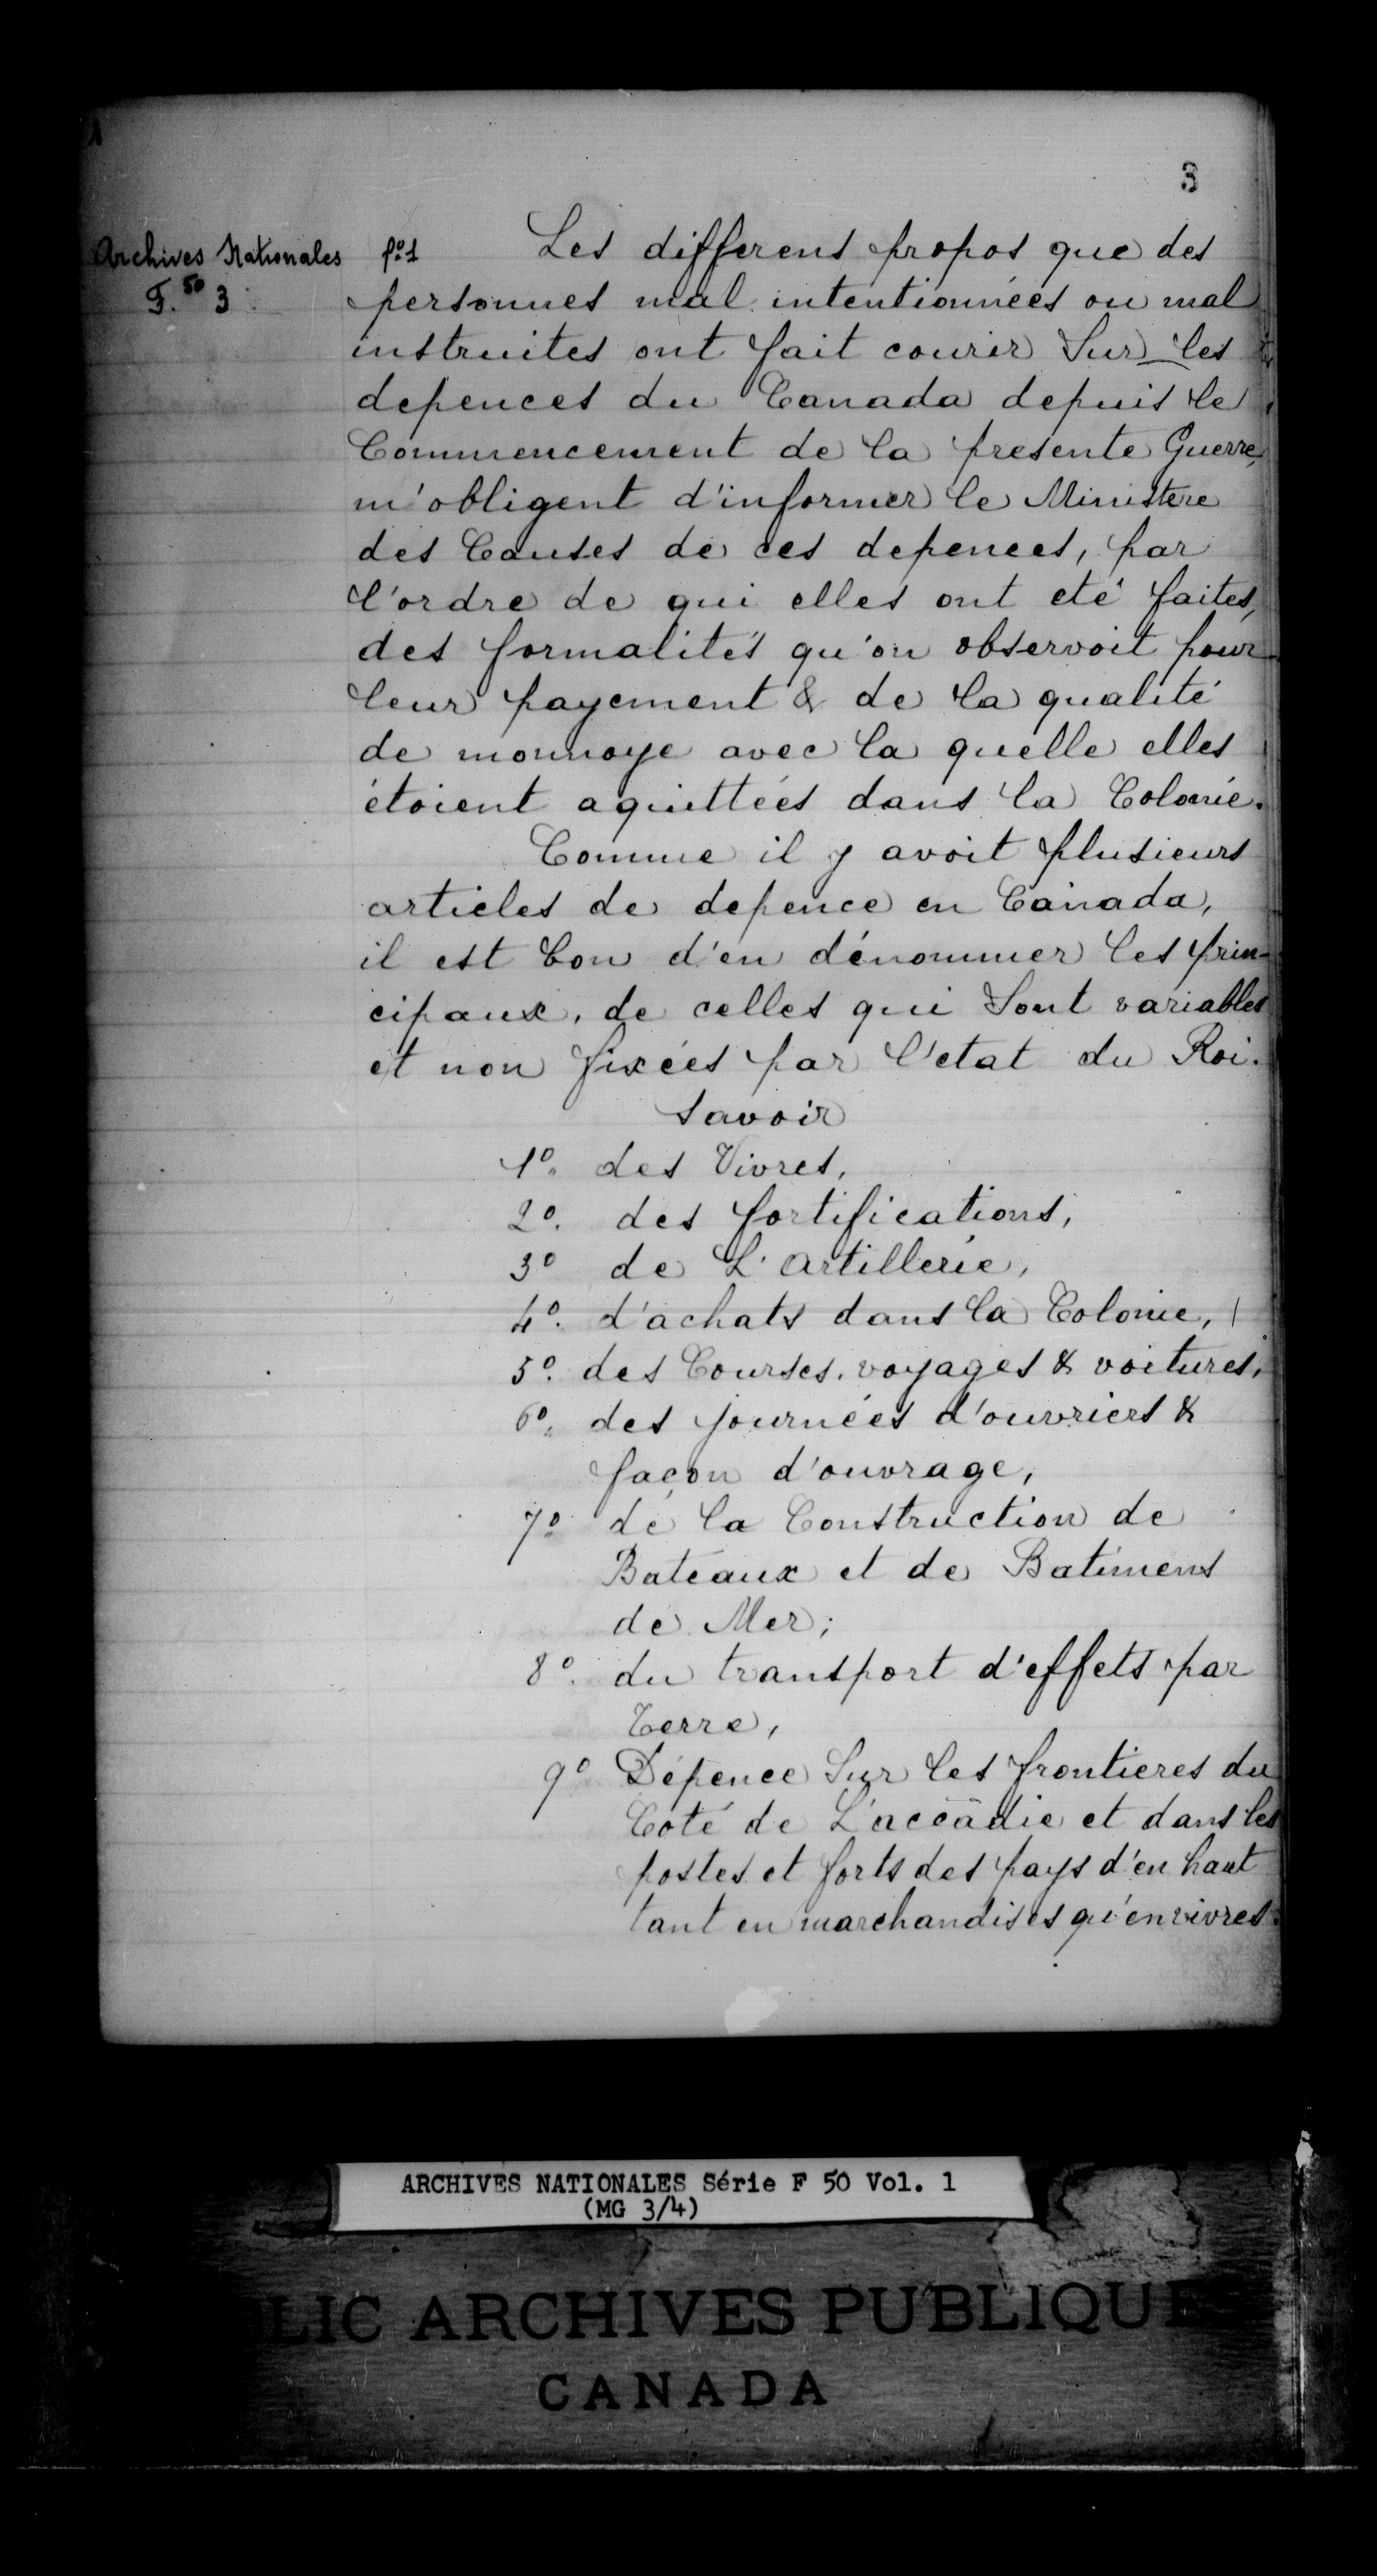 3
Archives Nationales
F. 50 3
fo 1 Les differens propos que des
personnes mal intentionnées ou mal
instruites ont fait courir Sur les
depences du Canada depuis le
Commencement de la presente Guerre,
m'obligent d'informer le Ministere
des Causes de ces depences, par
l'ordre de qui elles ont eté faites,
des formalités qu'on observoit pour
leur payement & de la qualité
de monnoye avec la quelle elles
étoient aquittées dans la Colonie.
Comme il y avoit plusieurs
articles de depence en Canada,
il est bon d'en dénommer les prin-
cipaux, de celles qui Sont variables
et non fixées par l'etat du Roi.
Savoir
1o. des Vivres,
2o. des fortifications,
3o de L'artillerie,
4o. d'achats dans la Colonie,
5o. des Courses, voyages & voitures,
6o. des journées d'ouvriers &
façon d'ouvrage,
7o de la Construction de
Bateaux et de Batimens
de Mer;
8o. du transport d'effets par
Terre,
9o Dépence Sur les frontieres du
Coté de L'accadie et dans les
postes et forts des pays d'en haut
tant en marchandises qu'en vivres.
ARCHIVES NATIONALES Série F 50 Vol. 1
(MG 3/4)
LIC ARCHIVES PUBLIQUE
CANADA